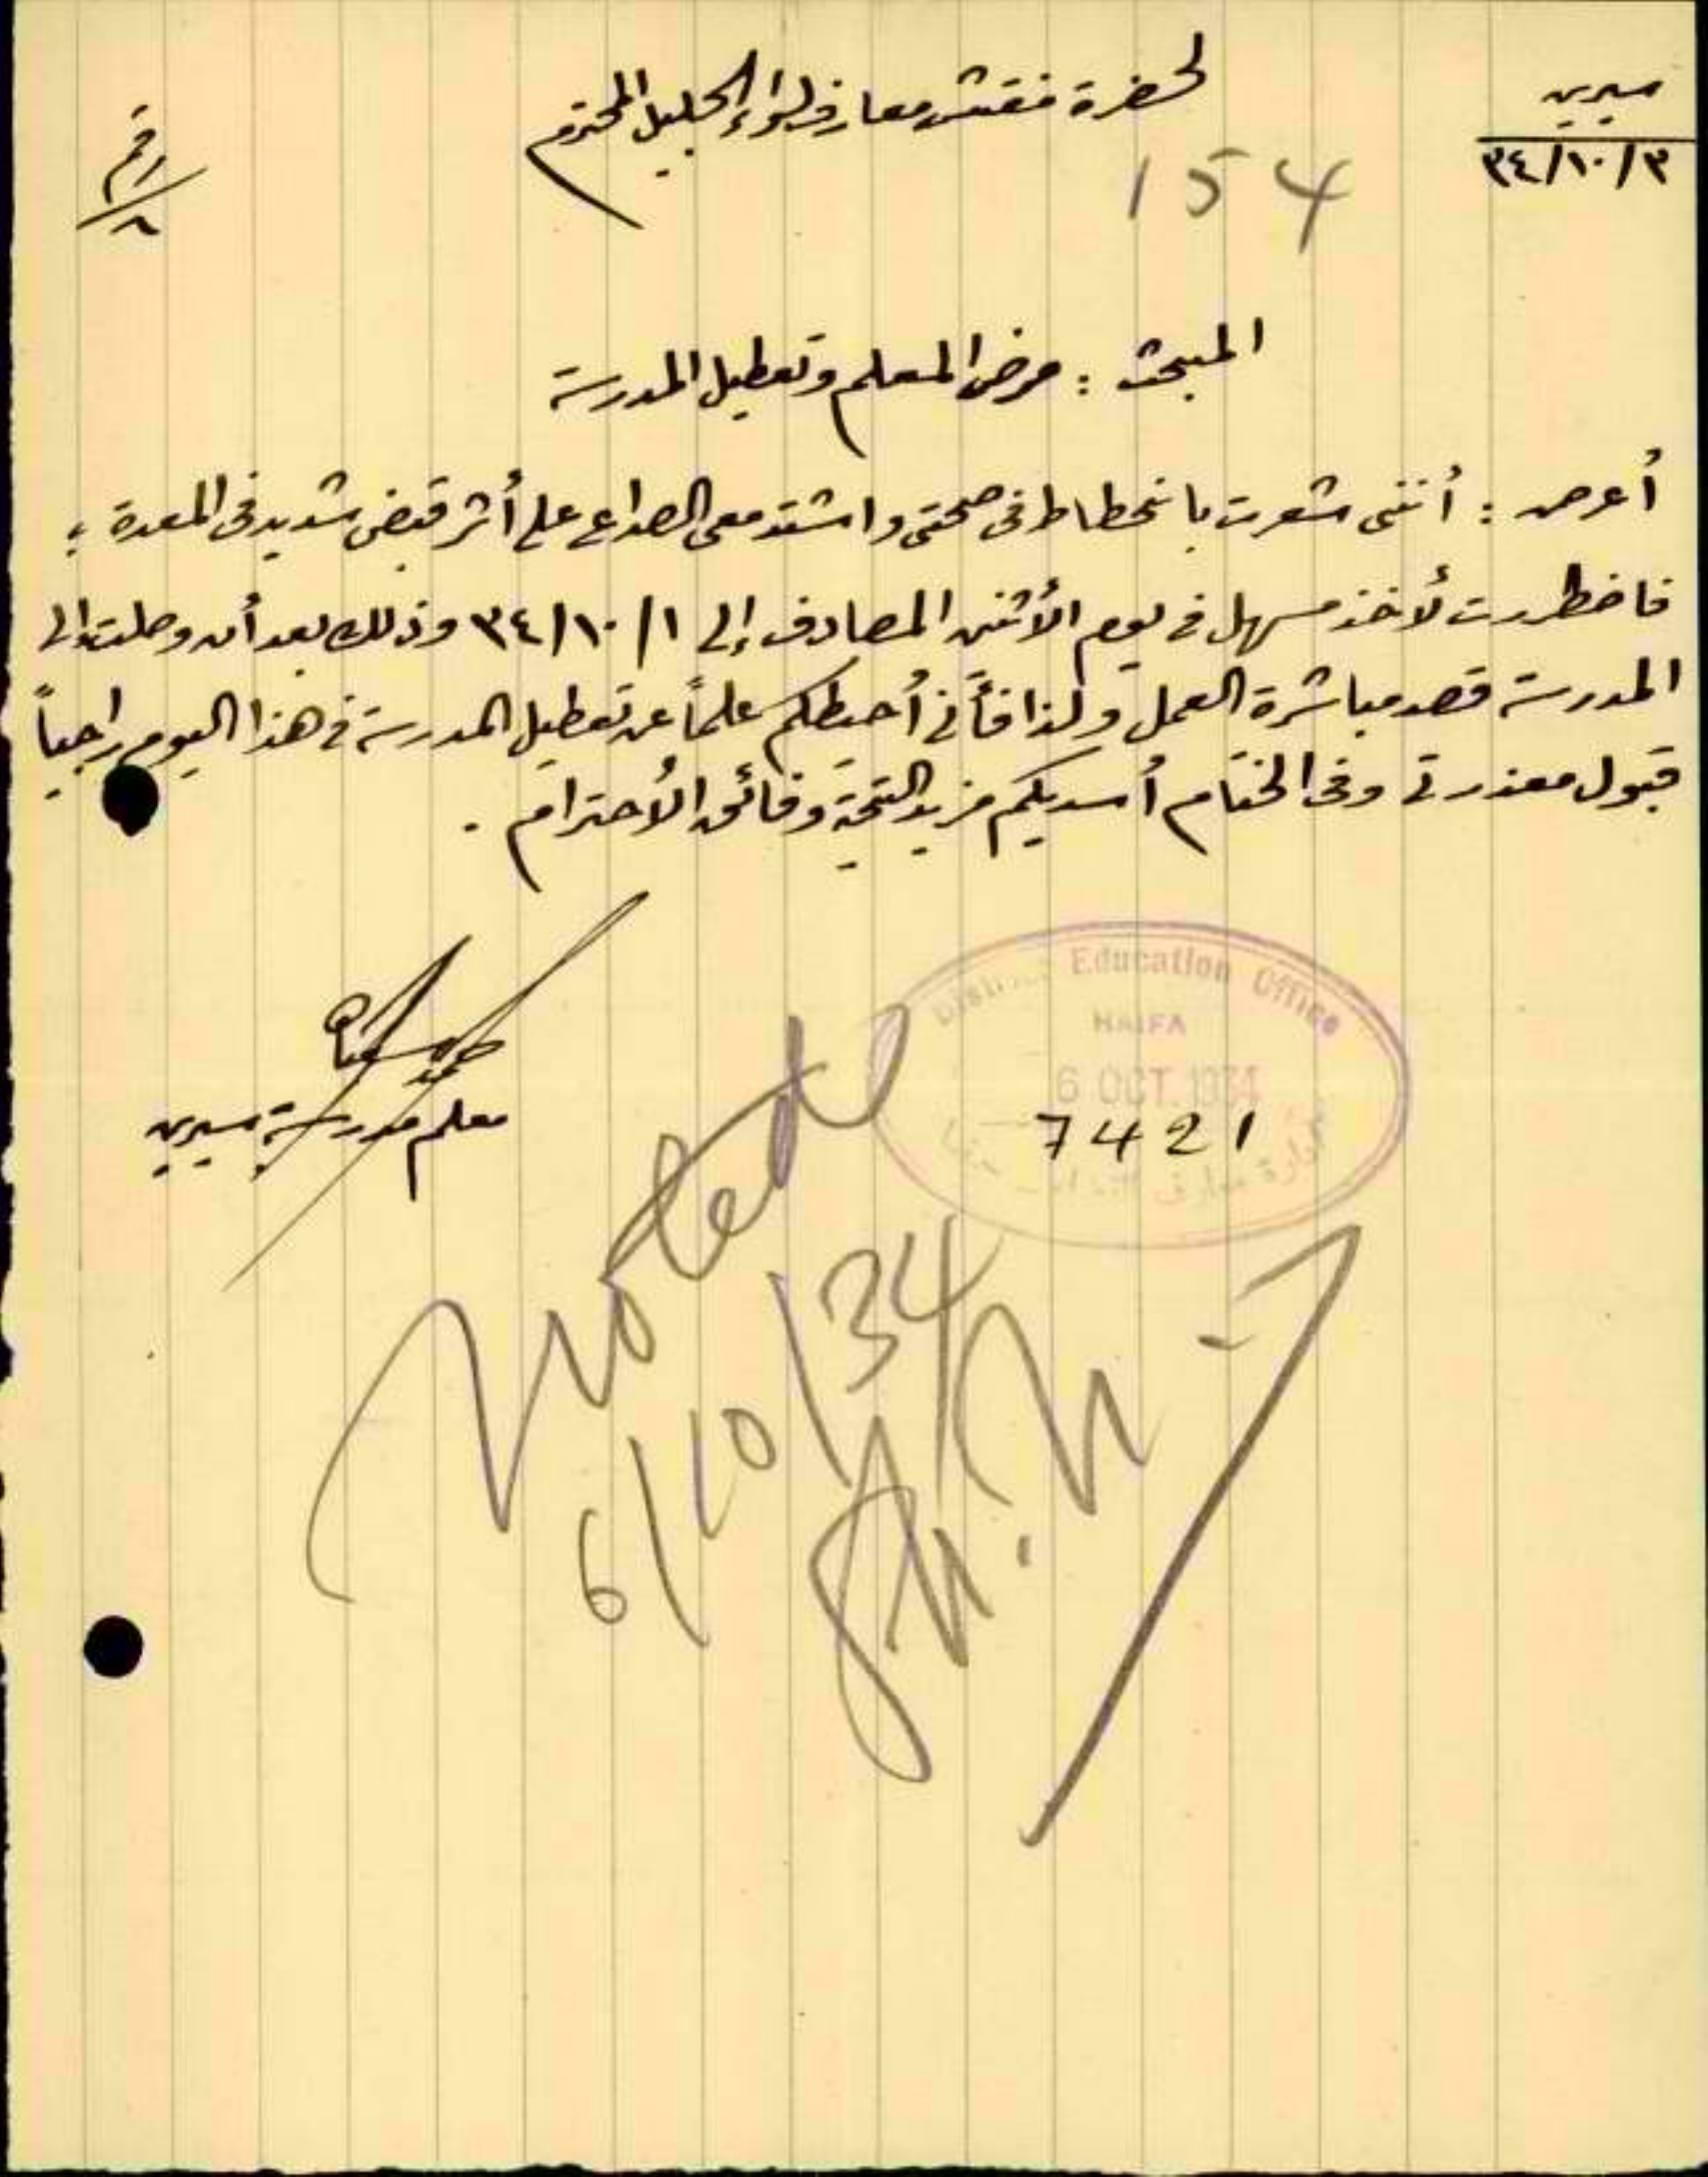 سيرين
٣٤/١٠/٣
لحضرة مفتش معارف لواء الجليل المحترم
رقم
٨
154
المبحث : مرض المعلم وتعطيل المدرسة
أعرض : أنني شعرت بانحطاط في صحتي واشتد معي الصداع على أثر قبض شديد في المعدة ؛
فاضطررت لأخذ مسهل في يوم الأثنين المصادف إلى ٣٤/١٠/١ وذلك بعد أن وصلت الى
المدرسة قصد مباشرة العمل ولذا فأني أحيطكم علماً عن تعطيل المدرسة في هذا اليوم راجياً
قبول معذرتي وفي الختام أسديكم مزيد التحية وفائق الأحترام .
معلم مدرسة سيرين
District Education Office
HAIFA
6 OCT. 1934
7421
ادارة معارف
Noted
6/10/34